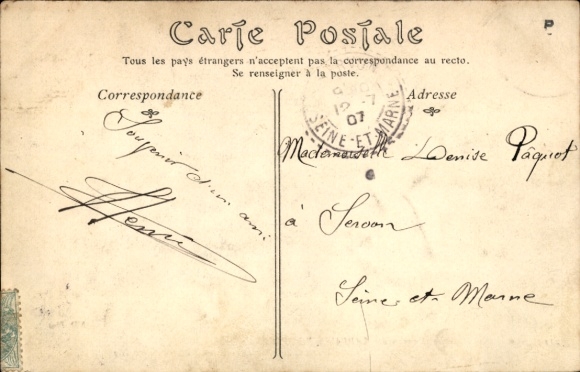 Carte Postale
P
Tous les pays étrangers n'acceptent pas la correspondance au recto.
Se renseigner à la poste.
Correspondance
Souvenir d'un ami
Henri
Adresse
12 -7
07
SEINE-ET-MARNE
Mademoiselle Denise Pâquot
à Servon
Seine-et-Marne